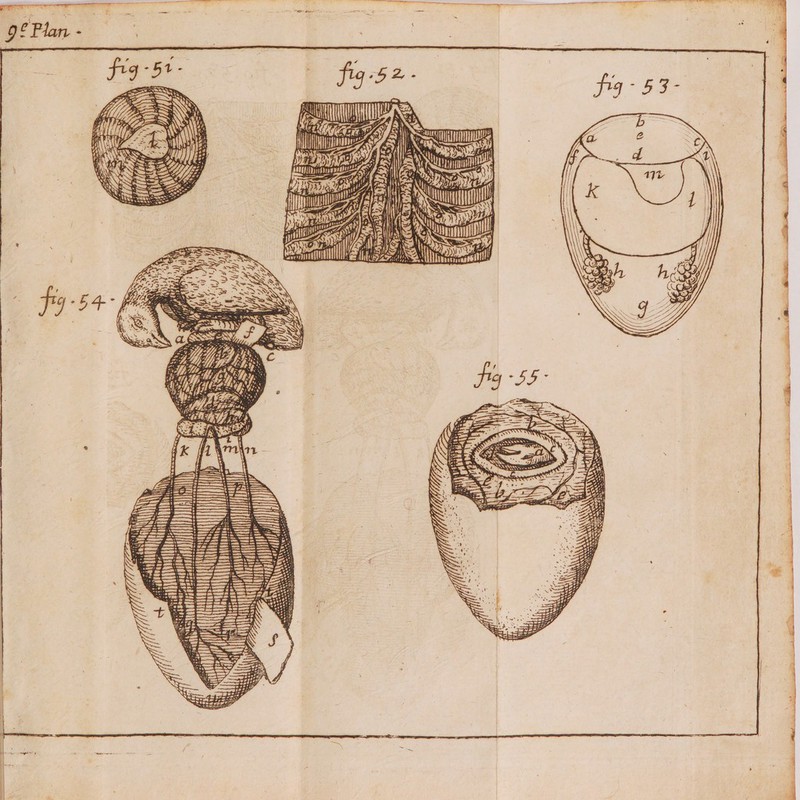 9e Plan.
fig. 51.
fig. 52.
fig. 53.
l
m
b
e
a
c
d
f
i
m
K
l
h
h
g
fig. 54.
a
f
c
b
k l m n
o
p
t
s
fig. 55.
b
a
b
e